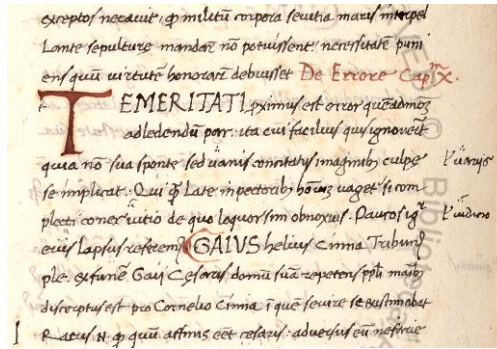 exceptos necauit, qp militũ corpora seuitia maris interpel
lante sepulture mandar̃ nõ potuissent: necessitatẽ puni
ens quũ virtutẽ honorar̃ debuisset De Errore Cap
TEMERITATI pximus est error quẽadmoꝫ
ad ledendũ par: ita cui facilius quis ignouerit
quia nõ sua sponte sed uanis concitatus imaginibꝫ culpe
se implicat. Qui q̃ Late in pectoribꝫ hoĩuꝫ uaget si com
plecti coner uitio de quo loquor sim obnoxius. Paucos igr̃
eius lapsus referem GAIUS helius Cinna Tribunꝰ
ple. ex funere Gaii Cesaris domũ suã repetens ppĺi manibꝫ
discerptus est pro Cornelio Cinna ĩ quẽ seuire se existimabat
Ratus qp quũ affinis eẽt cesaris: aduersus eũ nefarie
l' uarijs
l' iudicio
Biblioteca